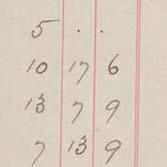 5 . .
10 17 6
13 7 9
7 13 9